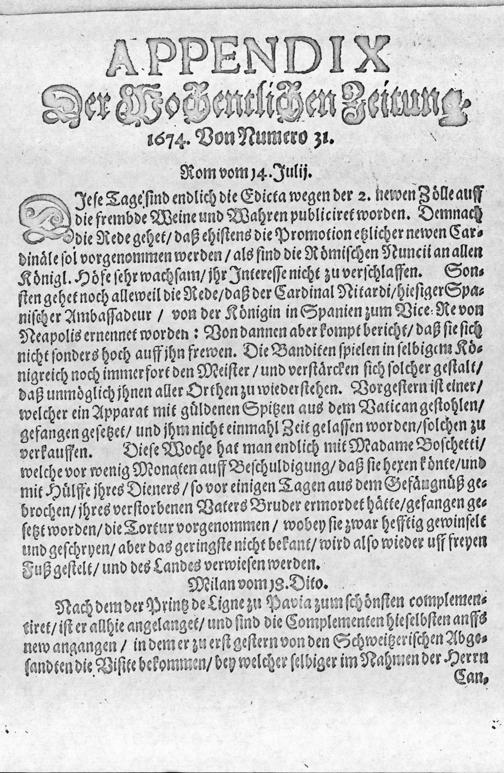 APPENDIX
Der Wochentlichen Zeitung.
1674. Von Numero 31.
Rom vom 14. Julij.
DIese Tage sind endlich die Edicta wegen der 2. newen Zölle auff
die frembde Weine und Wahren publiciret worden. Demnach
die Rede gehet/ daß ehistens die Promotion etzlicher newen Car-
dinäle sol vorgenommen werden/ als sind die Römischen Nuncii an allen
Königl. Höfe sehr wachsam/ jhr Interesse nicht zu verschlaffen. Son-
sten gehet noch alleweil die Rede/ daß der Cardinal Nitardi/ hiesiger Spa-
nischer Ambassadeur/ von der Königin in Spanien zum Vice-Re von
Neapolis ernennet worden: Von dannen aber kompt bericht/ daß sie sich
nicht sonders hoch auff jhn frewen. Die Banditen spielen in selbigem Kö-
nigreich noch immerfort den Meister/ und verstärcken sich solcher gestalt/
daß unmöglich jhnen aller Orthen zu wiederstehen. Vorgestern ist einer/
welcher ein Apparat mit güldenen Spitzen aus dem Vatican gestohlen/
gefangen gesetzet/ und jhm nicht einmahl Zeit gelassen worden/ solchen zu
verkauffen. Diese Woche hat man endlich mit Madame Boschetti/
welche vor wenig Monaten auff Beschuldigung/ daß sie hexen könte/ und
mit Hülffe jhres Dieners/ so vor einigen Tagen aus dem Gefängnüß ge-
brochen/ jhres verstorbenen Vaters Bruder ermordet hätte/ gefangen ge-
setzt worden/ die Tortur vorgenommen/ wobey sie zwar hefftig gewinselt
und geschryen/ aber das geringste nicht bekant/ wird also wieder uff freyen
Fuß gestelt/ und des Landes verwiesen werden.
Milan vom 18. Dito.
Nach dem der Printz de Ligne zu Pavia zum schönsten complemen-
tiret/ ist er allhie angelanget/ und sind die Complementen hieselbsten auffs
new angangen/ in dem er zu erst gestern von den Schweitzerischen Abge-
sandten die Visite bekommen/ bey welcher selbiger im Nahmen der Herrn
Can-